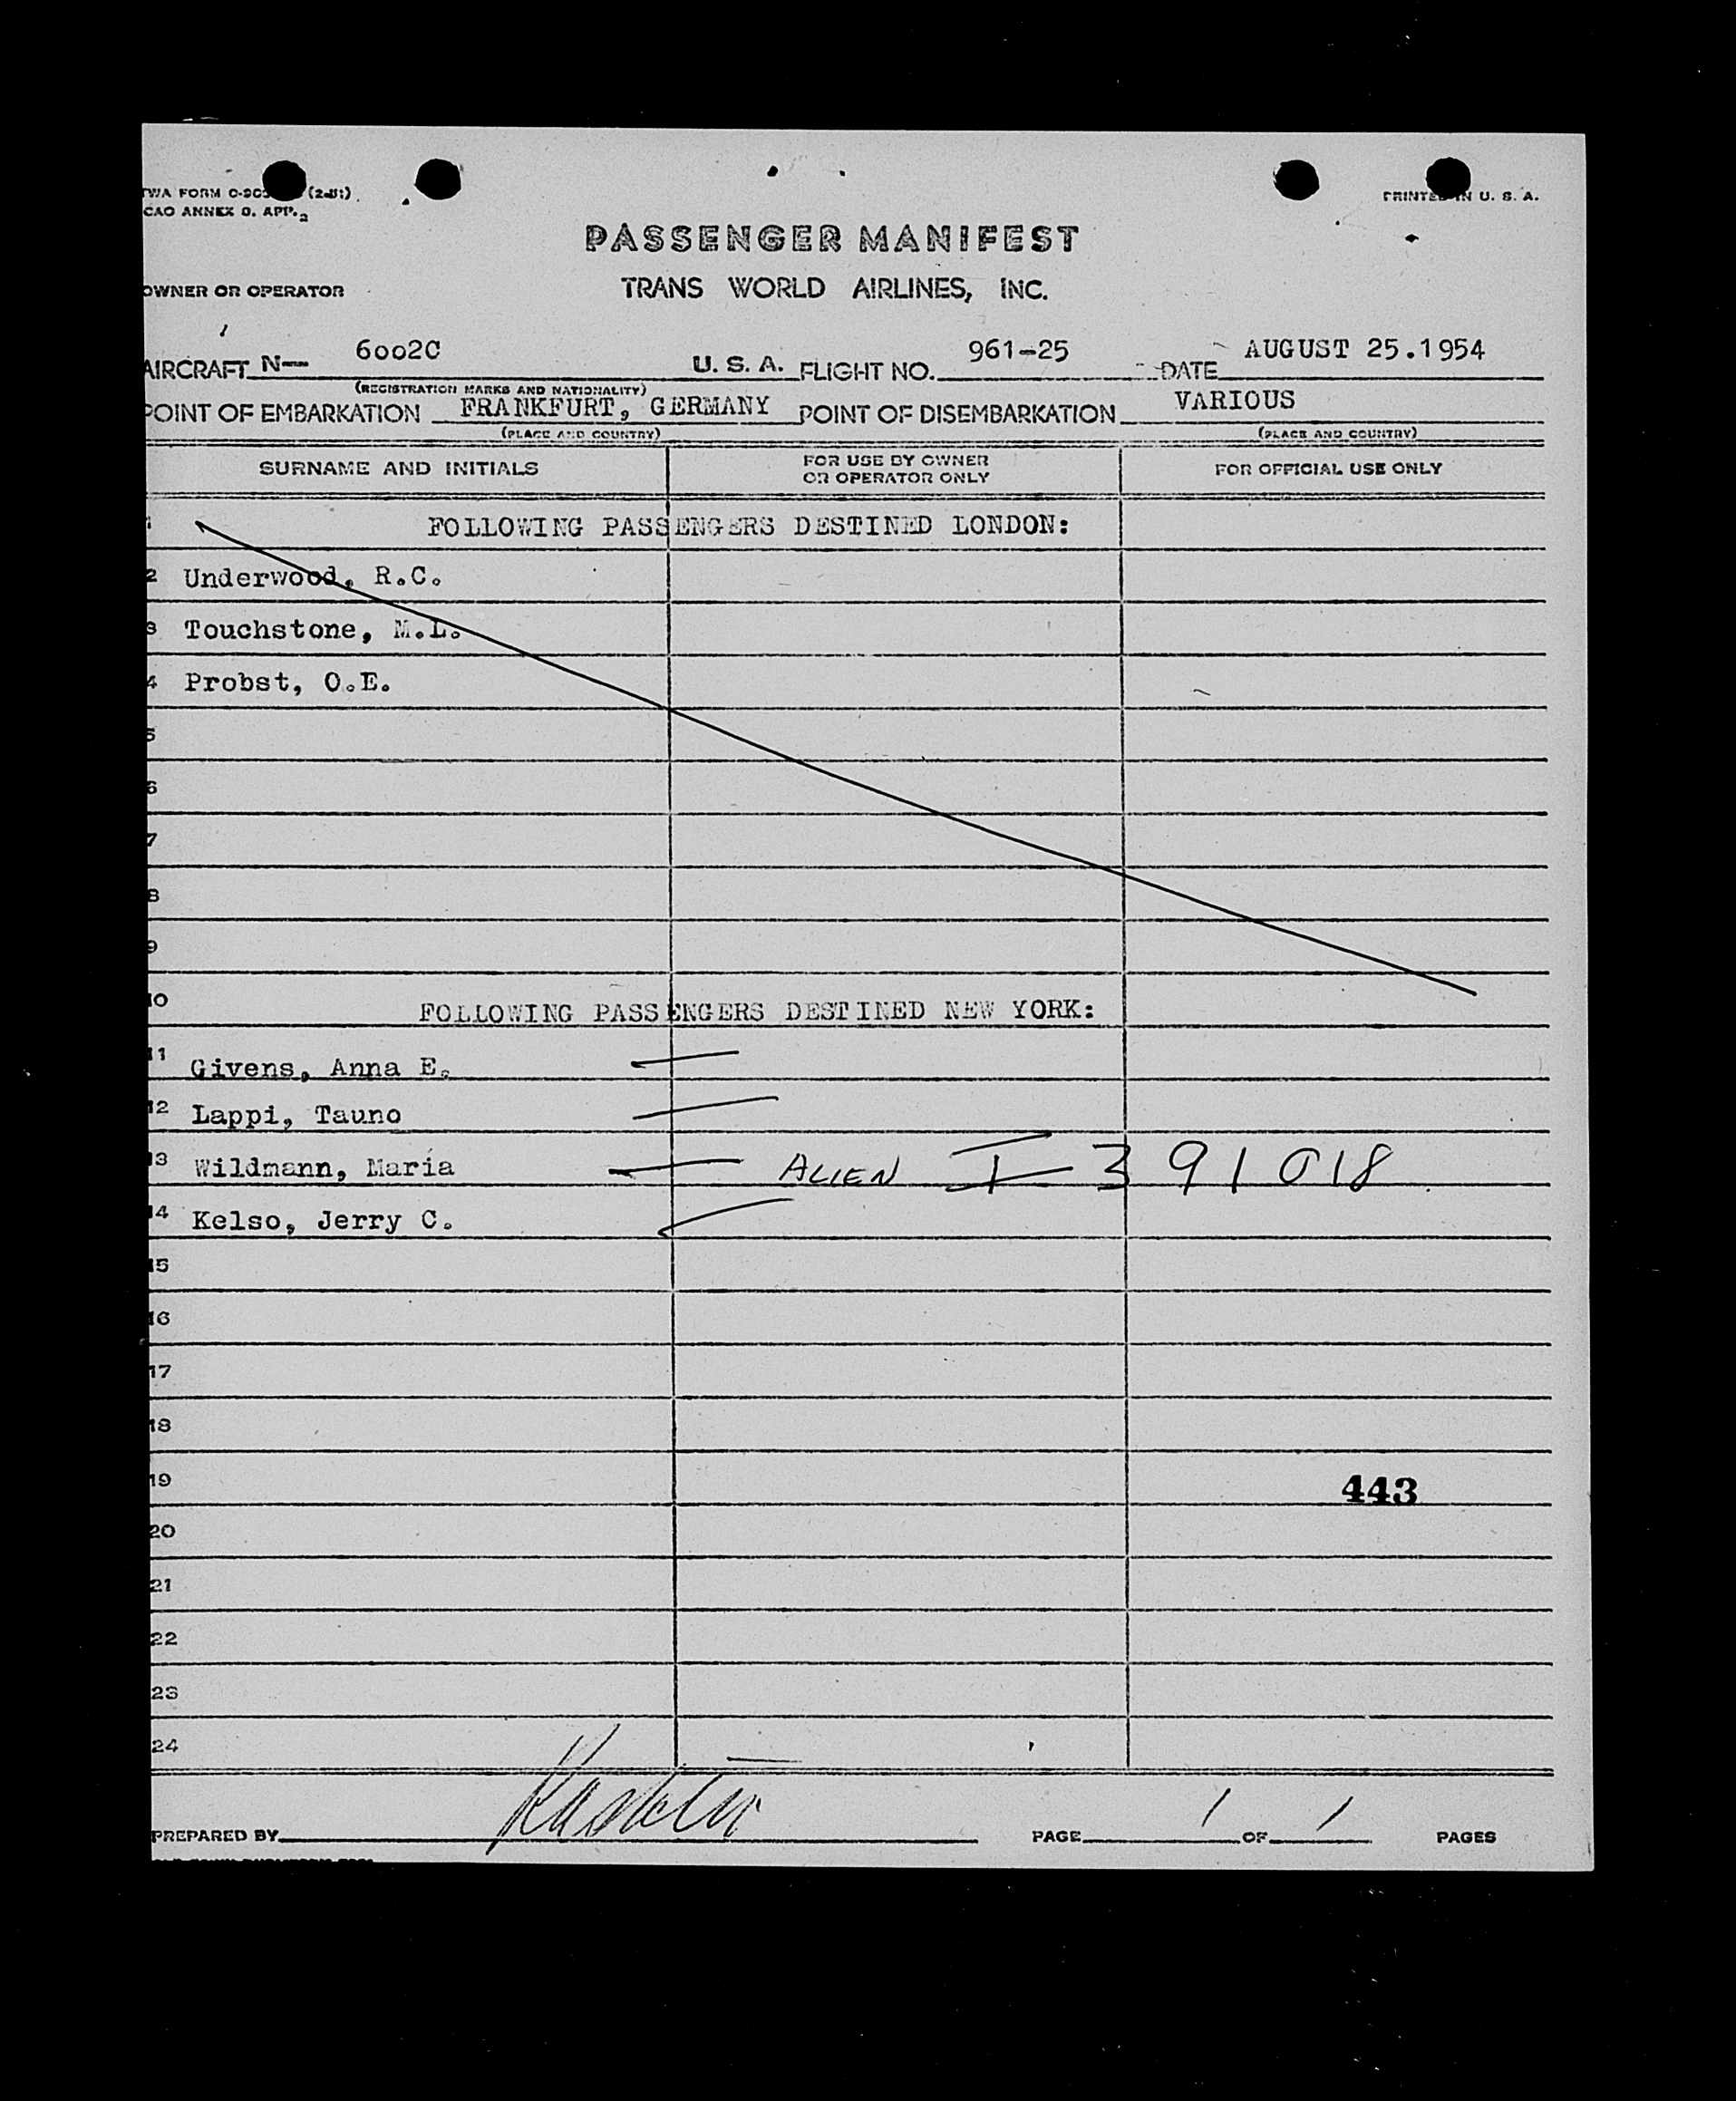 PRINTED IN U. S. A.
CAO ANNEX 9. APP. 2
PASSENGER MANIFEST
OWNER OR OPERATOR TRANS WORLD AIRLINES, INC.
AIRCRAFT N— 6002C U. S. A. FLIGHT NO. 961-25 DATE AUGUST 25.1954
(REGISTRATION MARKS AND NATIONALITY)
POINT OF EMBARKATION FRANKFURT, GERMANY POINT OF DISEMBARKATION VARIOUS
(PLACE AND COUNTRY) (PLACE AND COUNTRY)
SURNAME AND INITIALS FOR USE BY OWNER OR OPERATOR ONLY FOR OFFICIAL USE ONLY
1 FOLLOWING PASSENGERS DESTINED LONDON:
2 Underwood, R.C.
3 Touchstone, M.L.
4 Probst, O.E.
5
6
7
8
9
10 FOLLOWING PASSENGERS DESTINED NEW YORK:
11 Givens, Anna E.
12 Lappi, Tauno
13 Wildmann, Maria ALIEN I 391018
14 Kelso, Jerry C.
15
16
17
18
19 443
20
21
22
23
24
PREPARED BY PAGE 1 OF 1 PAGES